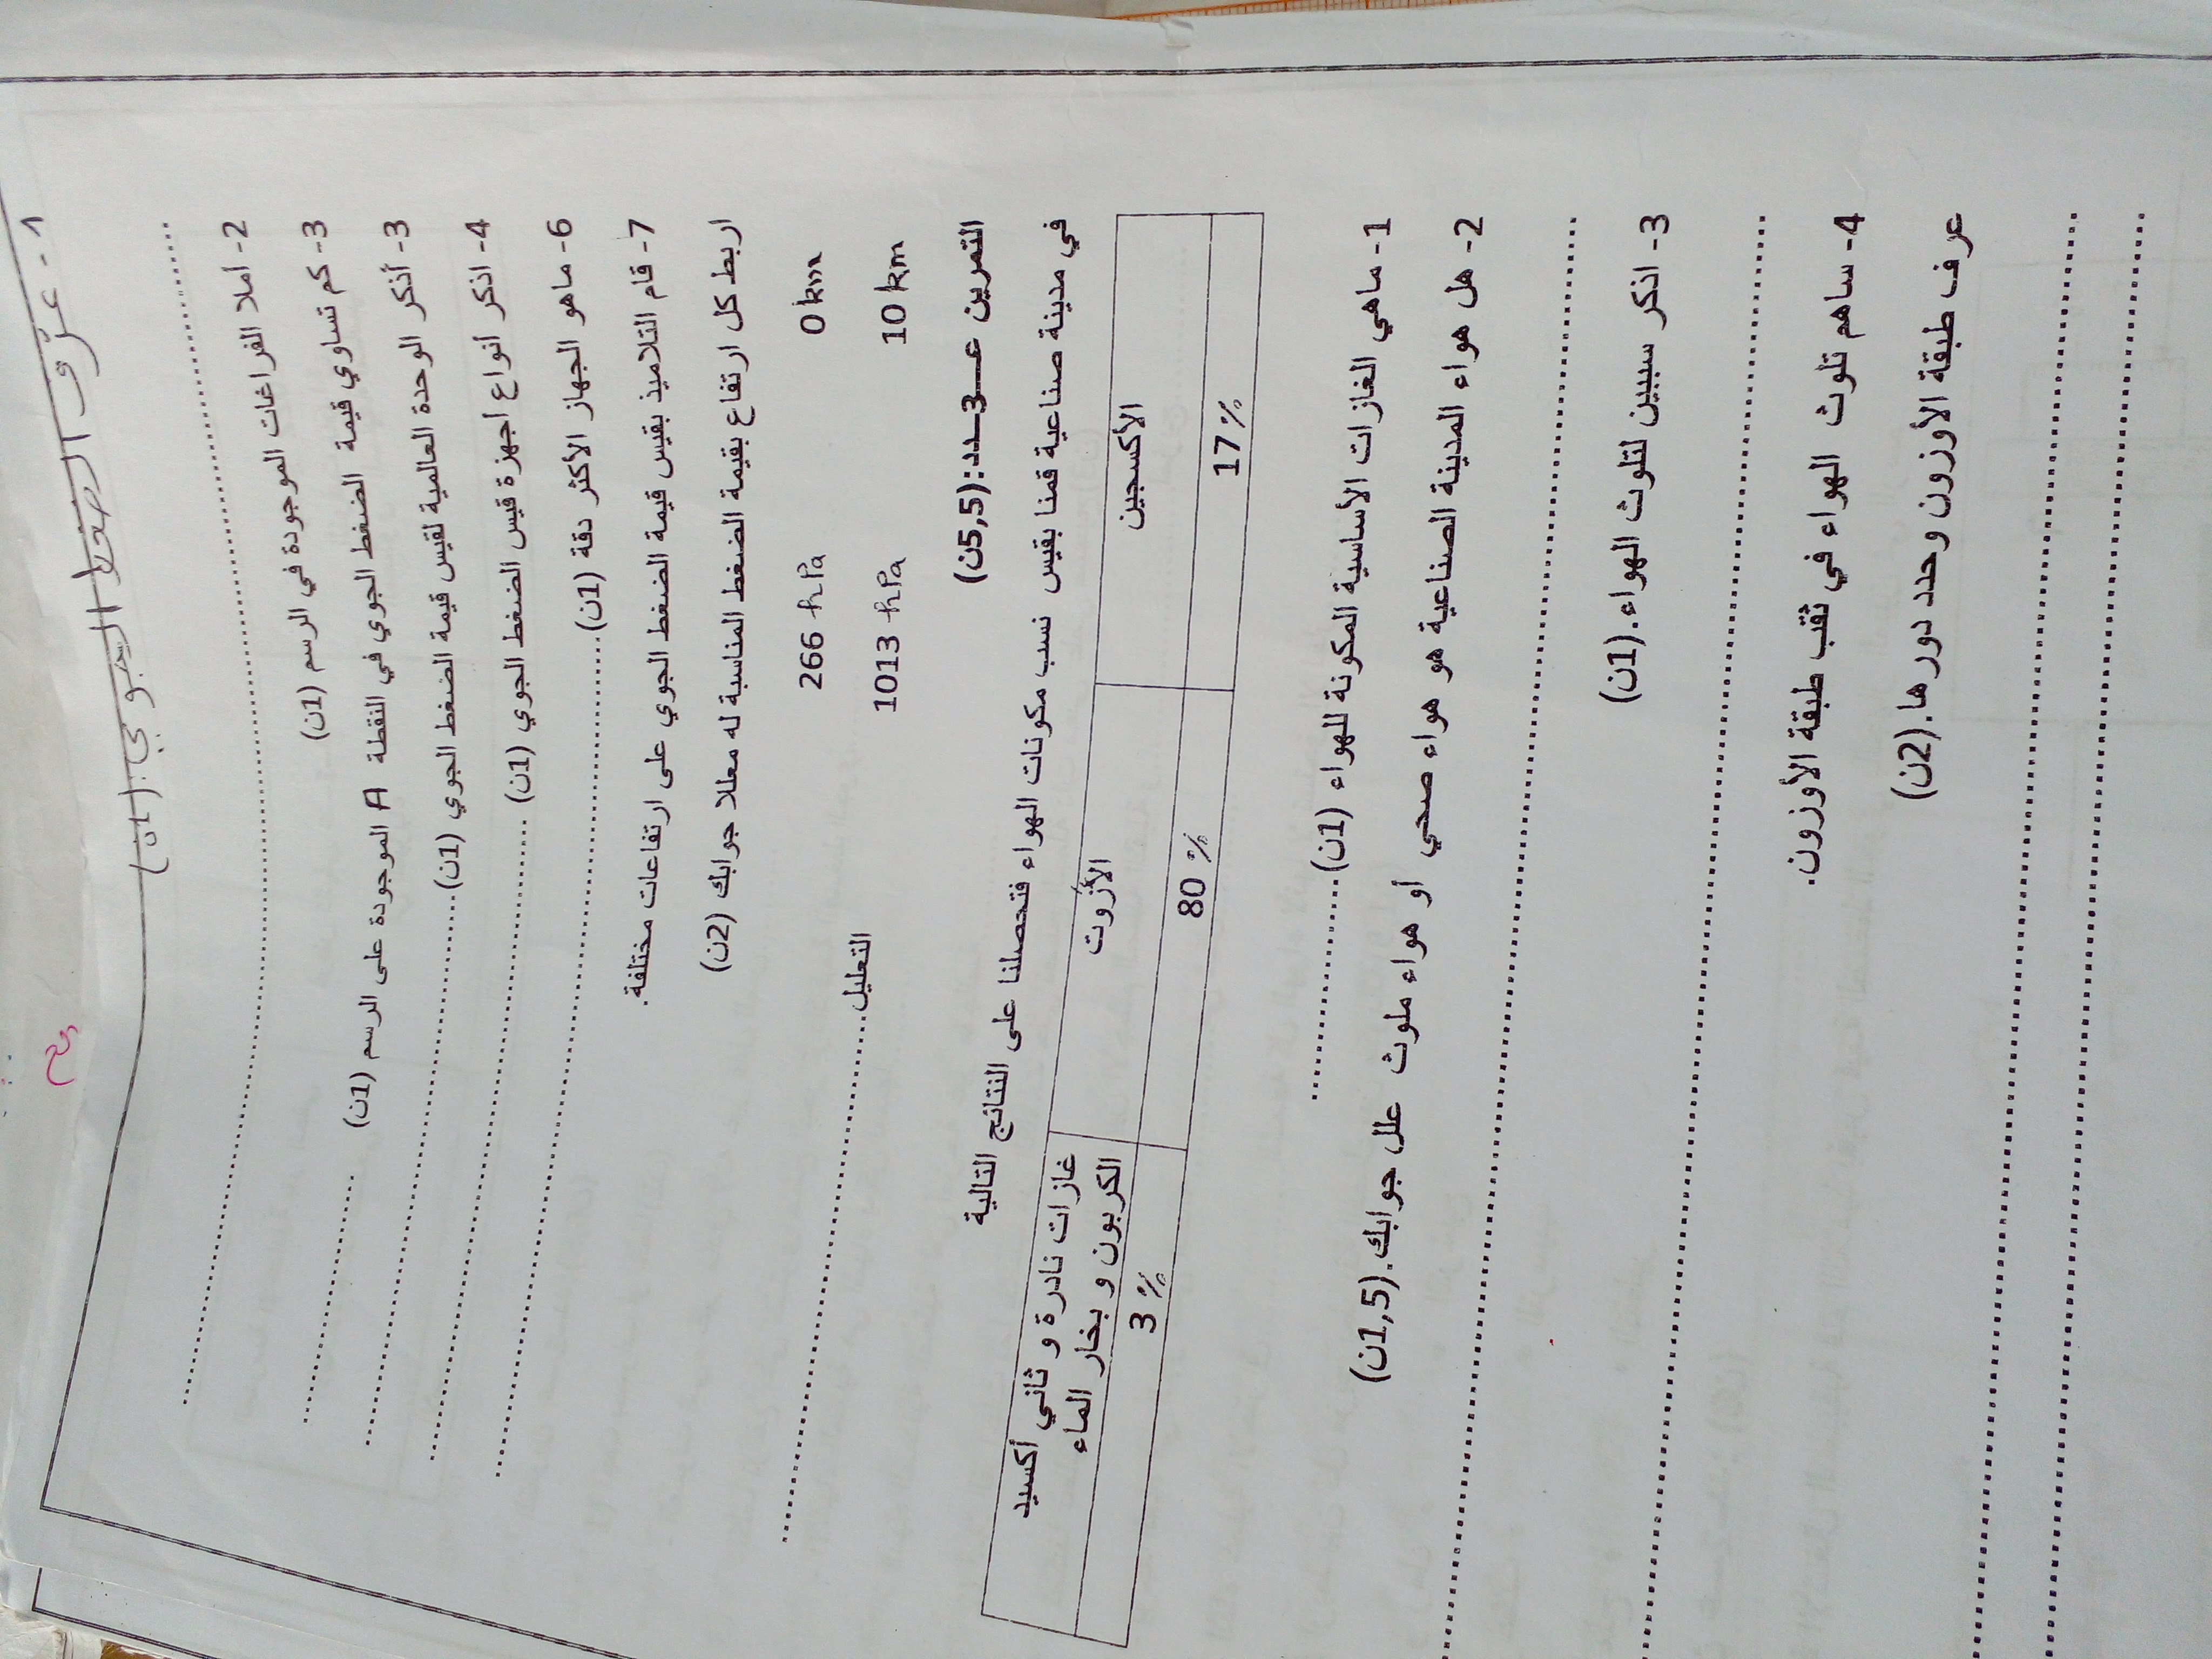 1- عرّف الضغط الجوي: (1ن)
2- املا الفراغات الموجودة في الرسم (1ن)
3- كم تساوي قيمة الضغط الجوي في النقطة A الموجودة على الرسم (1ن)
3- أذكر الوحدة العالمية لقيس قيمة الضغط الجوي (1ن)
4- اذكر أنواع اجهزة قيس الضغط الجوي (1ن)
6- ماهو الجهاز الأكثر دقة (1ن)
7- قام التلاميذ بقيس قيمة الضغط الجوي على ارتفاعات مختلفة.
اربط كل ارتفاع بقيمة الضغط المناسبة له معللا جوابك (2ن)
0 km 266 hPa
10 km 1013 hPa التعليل
التمرين عـــ3ــدد:(5,5ن)
في مدينة صناعية قمنا بقيس نسب مكونات الهواء فتحصلنا على النتائج التالية
الأكسجين الأزوت غازات نادرة و ثاني أكسيد
الكربون و بخار الماء
17 % 80 % 3 %
1- ماهي الغازات الأساسية المكونة للهواء (1ن)
2- هل هواء المدينة الصناعية هو هواء صحي أو هواء ملوث علل جوابك.(1,5ن)
3- اذكر سببين لتلوث الهواء.(1ن)
4- ساهم تلوث الهواء في ثقب طبقة الأوزون.
عرف طبقة الأوزون وحدد دورها.(2ن)